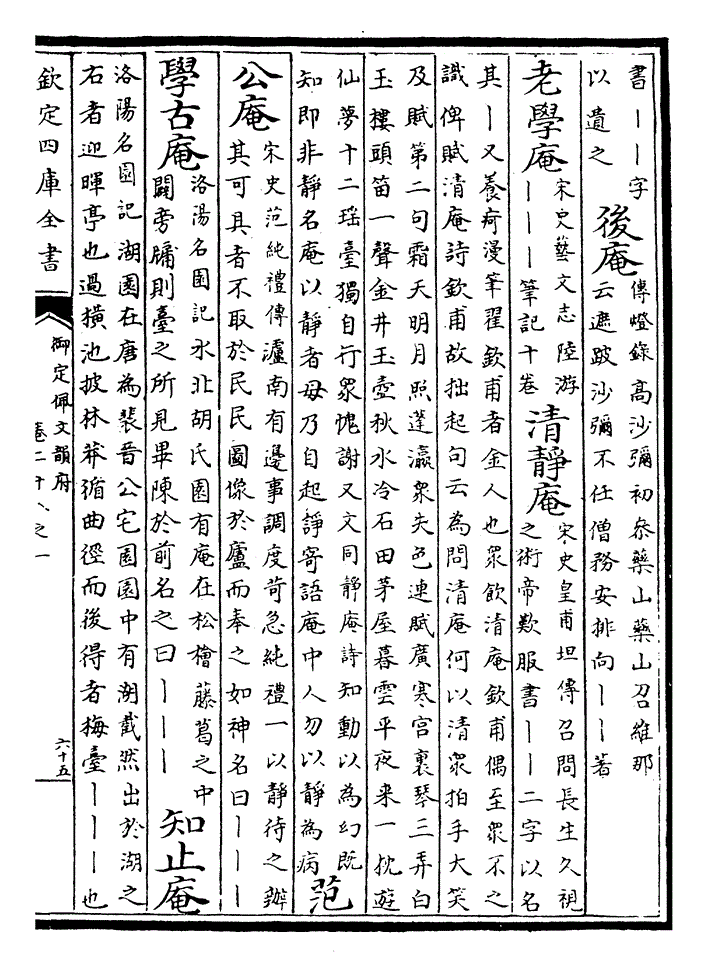 書——字
以遺之
後庵
傳燈錄高沙彌初叅藥山藥山召維那
云遮跛沙彌不任僧務安排向——著
老學庵
宋史藝文志陸游
———筆記十卷
清靜庵
宋史皇甫坦傳召問長生久視
之術帝歎服書——二字以名
其—又養疴漫筆翟欽甫者金人也衆飲清庵欽甫偶至衆不之
識俾賦清庵詩欽甫故拙起句云為問清庵何以清衆拍手大笑
及賦第二句霜天明月照蓬瀛衆失色連賦廣寒宮裏琴三弄白
玉樓頭笛一聲金井玉壺秋水冷石田茅屋暮雲平夜來一枕遊
仙夢十二瑤臺獨自行衆愧謝又文同靜庵詩知動以為幻既
知即非靜名庵以靜者毋乃自起諍寄語庵中人勿以靜為病
范
公庵
宋史范純禮傳瀘南有邊事調度苛急純禮一以靜待之辦
其可具者不取於民民圖像於廬而奉之如神名曰———
學古庵
洛陽名園記水北胡氏園有庵在松檜藤葛之中
闢旁牖則臺之所見畢陳於前名之曰———
知止庵
洛陽名園記湖園在唐為裴晉公宅園園中有湖截然出於湖之
右者迎暉亭也過橫池披林莽循曲徑而後得者梅臺———也
欽定四庫全書
御定佩文韻府
卷二十八之一
六十五